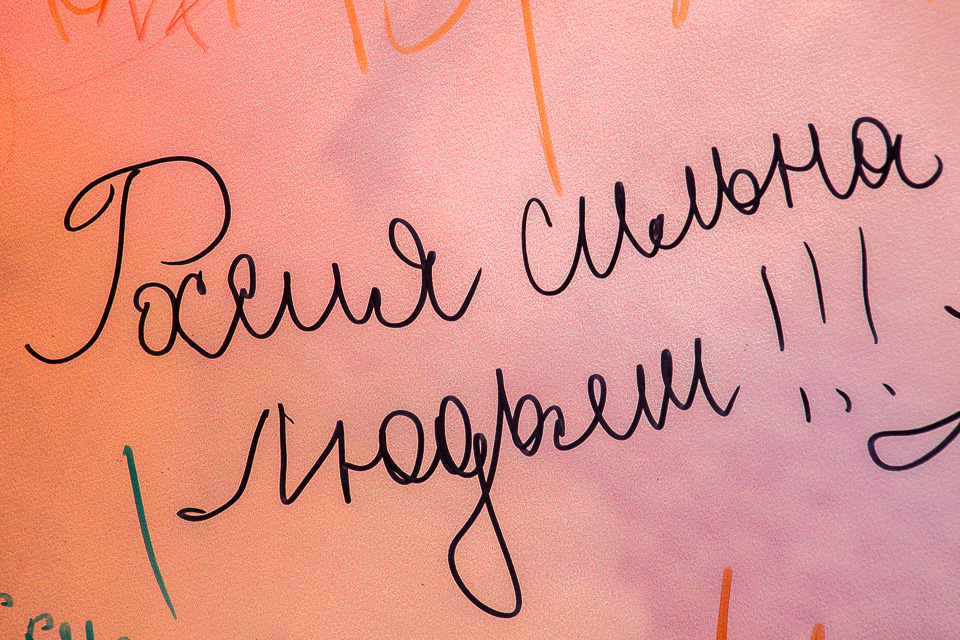 Россия сильна
людьми!!!